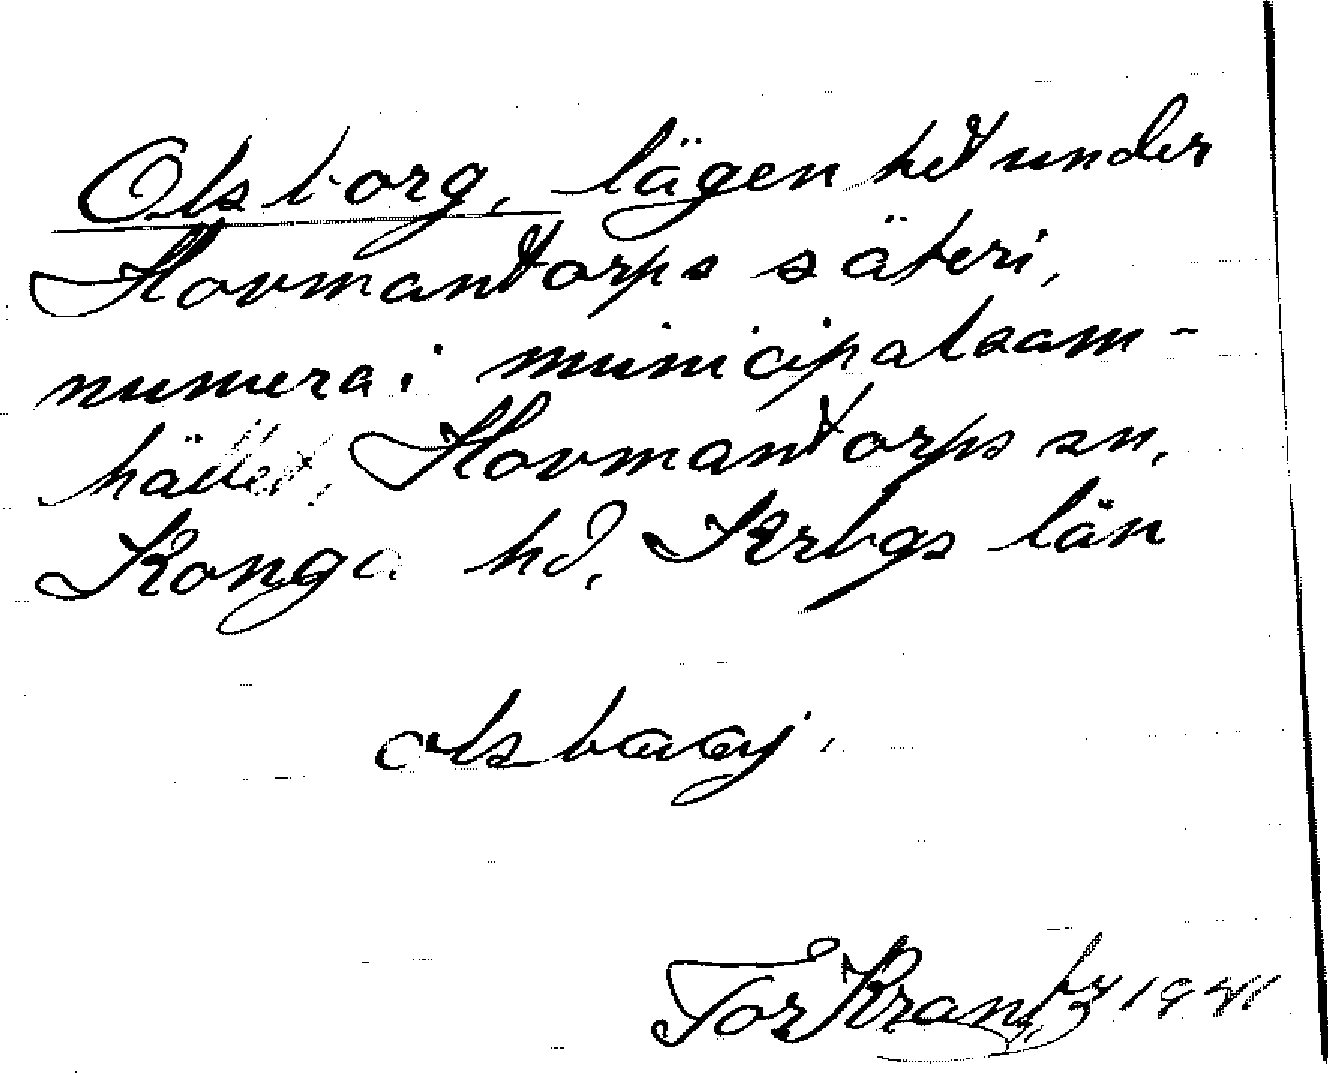 Olsborg, lägenhet under
Hovmantorps säteri,
numera i municipalsam-
hället, Hovmantorps sn,
Konga hd, Krbgs län
Tor Krantz 1941